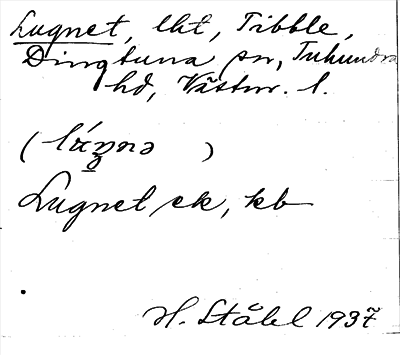 Lugnet, lht, Tibble,
Dingtuna sn, Tuhundra
hd, Västm. l.
( )
Lugnet ek, kb
H. Ståhl 1937